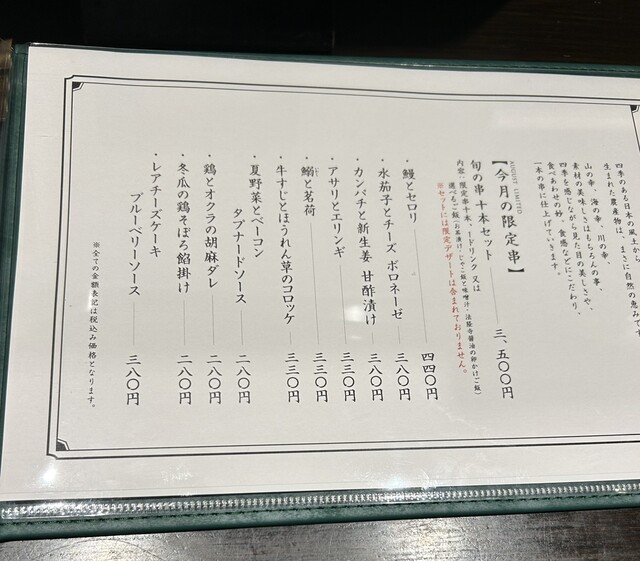 四季のある日本の風土から
生まれた農産物は、まさに自然の恵みです
山の幸、海の幸、川の幸。
素材の美味しさはもちろんの事、
四季を感じながら見た目の美しさや、
食べあわせの妙、食感などにこだわり、
一本の串に仕上げていきます。
AUGUST LIMITED
【今月の限定串】
旬の串十本セット 三、五〇〇円
内容・限定串十本、1ドリンク 又は
選べるご飯(お茶漬け・じゃこ飯と味噌汁・法隆寺醤油の卵かけご飯)
※セットには限定デザートは含まれておりません。
・鰻とセロリ 四四〇円
・水茄子とチーズ ボロネーゼ 三八〇円
・カンパチと新生姜 甘酢漬け 三八〇円
・アサリとエリンギ 三三〇円
・鰯と茗荷 三三〇円
・牛すじとほうれん草のコロッケ 三三〇円
・夏野菜とベーコン
タプナードソース 二八〇円
・鶏とオクラの胡麻ダレ 二八〇円
・冬瓜の鶏そぼろ餡掛け 二八〇円
・レアチーズケーキ
ブルーベリーソース 三八〇円
※全ての金額表記は税込み価格となります。